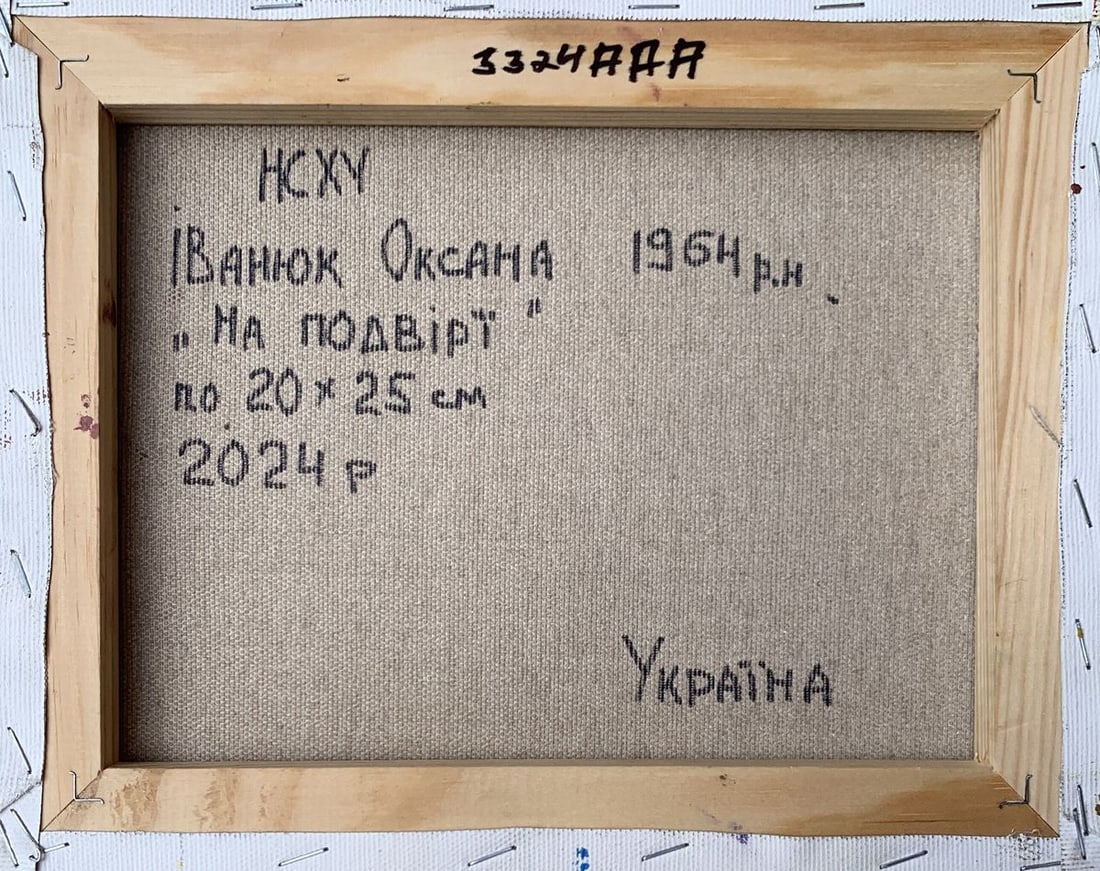 3324AAA
НСХУ
Іванюк Оксана 1964 р.н.
„На подвірї"
по 20 х 25 см
2024 р
Україна